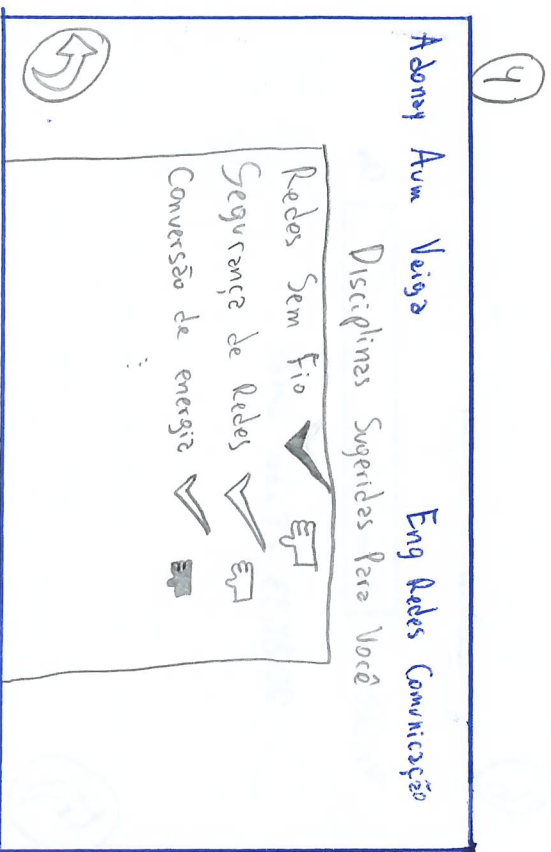 4
Adonay Aum Veiga Eng Redes Comunicação
Disciplinas Sugeridas Para Você
Redes Sem Fio
Segurança de Redes
Conversão de energia